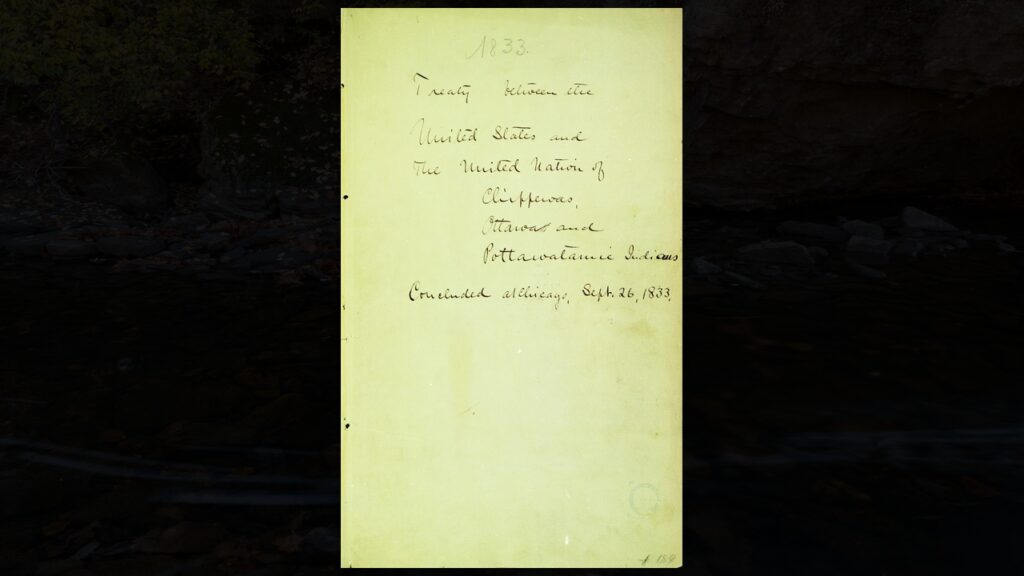 1833.
Treaty between the
United States and
The United Nation of
Chippewas,
Ottawas and
Pottawatamie Indians
Concluded at Chicago, Sept. 26, 1833.
# 189